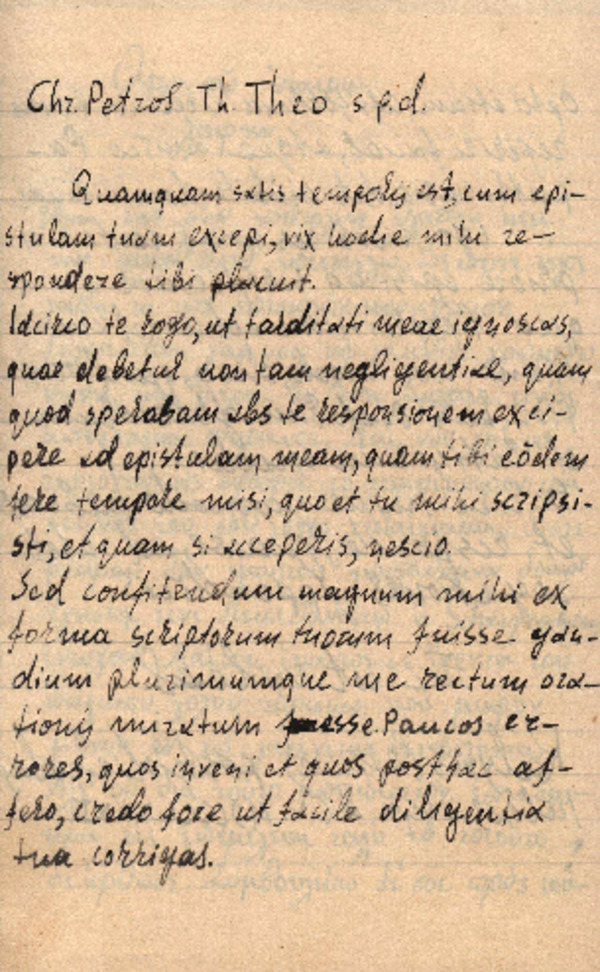 Chr. Petros Th. Theo s.p.d.
Quamquam satis temporis est, cum epi-
stulam tuam excepi, vix hodie mihi re-
spondere tibi placuit.
Idcirco te rogo, ut tarditati meae ignoscas,
quae debetur non tam negligentiae, quam
quod sperabam abs te responsionem exci-
pere ad epistulam meam, quam tibi eōdem
fere tempore misi, quo et tu mihi scripsi-
sti, et quam si acceperis, nescio.
Sed confitendum magnum mihi ex
forma scriptorum tuorum fuisse gau-
dium plurimumque me rectum ora-
tionis miratum esse. Paucos er-
rores, quos inveni et quos posthac af-
fero, credo fore ut facile diligentia
tua corrigas.